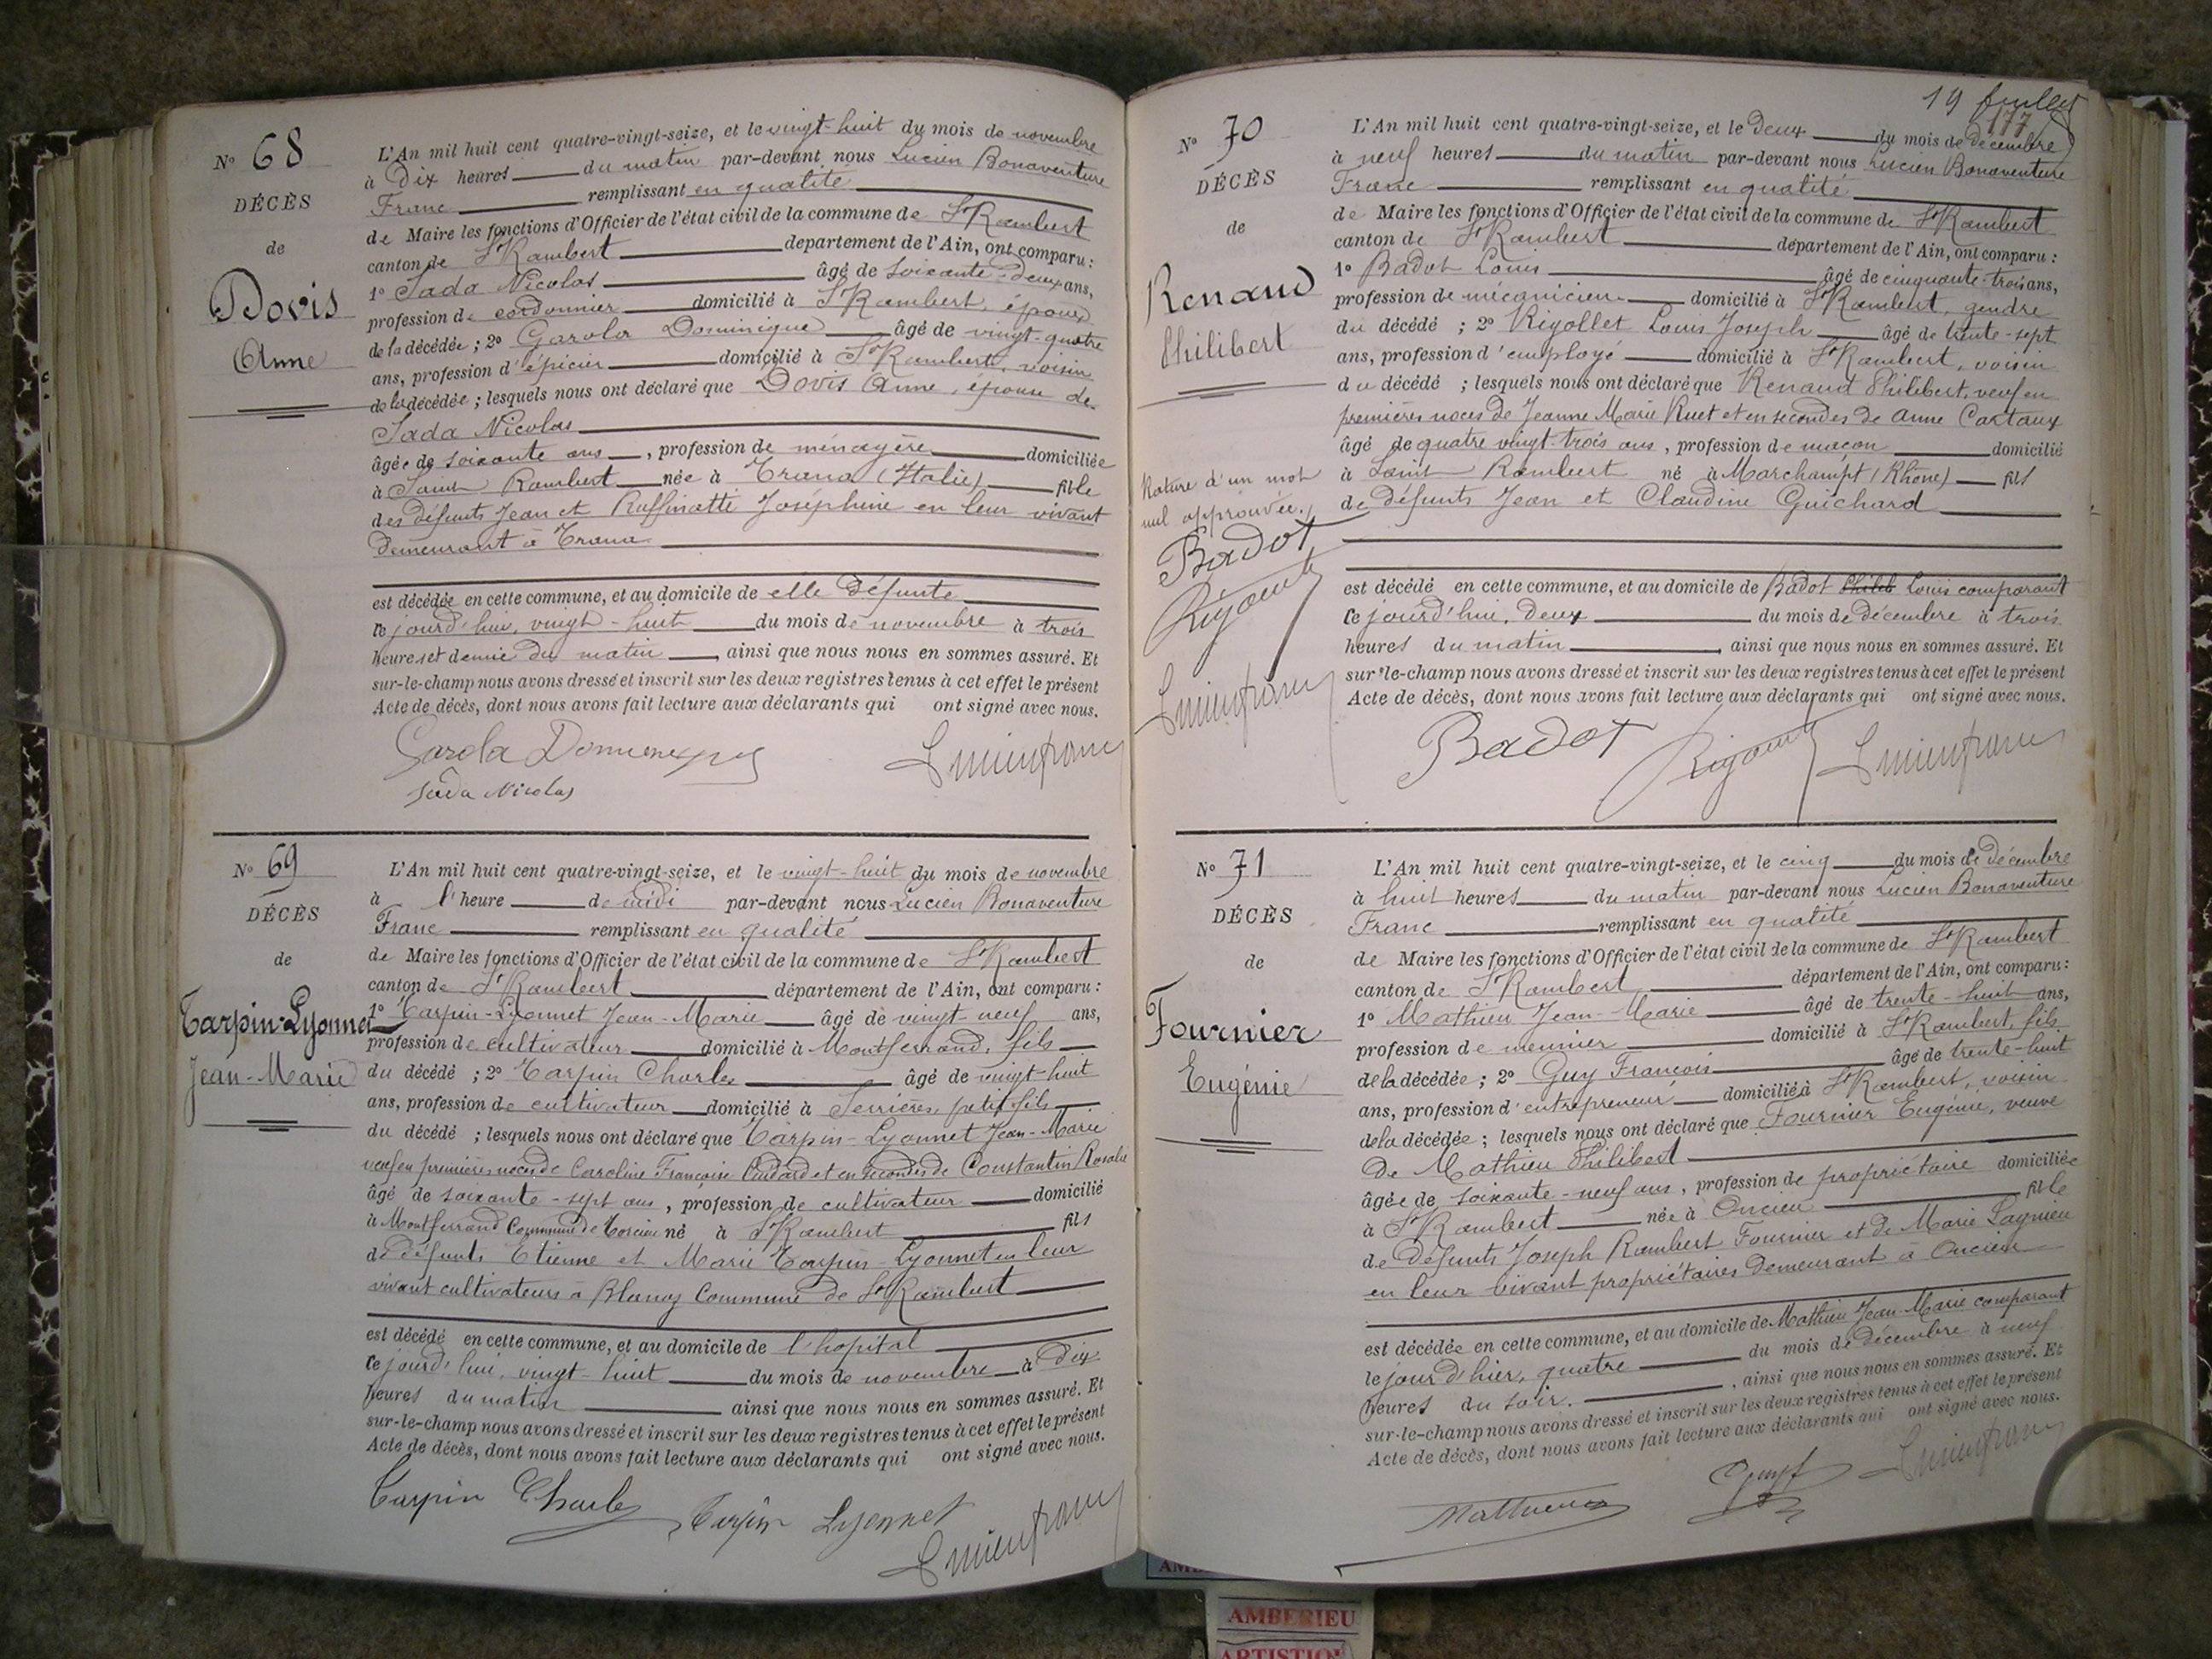 No 68
DÉCÈS
de
Dovis
Anne
L'An mil huit cent quatre-vingt-seize, et le vingt-huit du mois de novembre
à Dix heures du matin par-devant nous Lucien Bonaventure
Franc remplissant en qualité
de Maire les fonctions d'Officier de l'état civil de la commune de St Rambert
canton de St Rambert département de l'Ain, ont comparu :
1o Sada Nicolas âgé de soixante-deux ans,
profession de cordonnier domicilié à St Rambert, époux
de la décédée ; 2o Garola Dominique âgé de vingt-quatre
ans, profession d'épicier domicilié à St Rambert, voisin
de la décédée ; lesquels nous ont déclaré que Dovis Anne, épouse de
Sada Nicolas
âgée de soixante ans, profession de ménagère domiciliée
à Saint Rambert née à Trana (Italie) fille
des défunts Jean et Ruffinatti Joséphine en leur vivant
demeurant à Trana
est décédée en cette commune, et au domicile de elle défunte
ce jourd'hui, vingt-huit du mois de novembre à trois
heures et demie du matin, ainsi que nous nous en sommes assuré. Et
sur-le-champ nous avons dressé et inscrit sur les deux registres tenus à cet effet le présent
Acte de décès, dont nous avons fait lecture aux déclarants qui ont signé avec nous.
Garola
Sada Nicolas
No 69
DÉCÈS
de
Tarpin-Lyonnet
Jean-Marie
L'An mil huit cent quatre-vingt-seize, et le vingt-huit du mois de novembre
à l'heure de midi par-devant nous Lucien Bonaventure
Franc remplissant en qualité
de Maire les fonctions d'Officier de l'état civil de la commune de St Rambert
canton de St Rambert département de l'Ain, ont comparu :
1o Tarpin-Lyonnet Jean-Marie âgé de vingt neuf ans,
profession de cultivateur domicilié à Montferrand, fils
du décédé ; 2o Tarpin Charles âgé de vingt-huit
ans, profession de cultivateur domicilié à Serrières, petit fils
du décédé ; lesquels nous ont déclaré que Tarpin-Lyonnet Jean-Marie
veuf en premières noces de Caroline Françoise et en secondes de Constantin Rosalie
âgé de soixante-sept ans, profession de cultivateur domicilié
à Montferrand Commune de Torcieu né à St Rambert fils
de défunts Etienne et Marie Tarpin-Lyonnet en leur
vivant cultivateurs à Blanaz Commune de St Rambert
est décédé en cette commune, et au domicile de l'hopital
ce jourd'hui, vingt-huit du mois de novembre à Dix
heures du matin ainsi que nous nous en sommes assuré. Et
sur-le-champ nous avons dressé et inscrit sur les deux registres tenus à cet effet le présent
Acte de décès, dont nous avons fait lecture aux déclarants qui ont signé avec nous.
Tarpin Charles Tarpin Lyonnet
19
177
No 70
DÉCÈS
de
Renaud
Philibert
L'An mil huit cent quatre-vingt-seize, et le Deux du mois de décembre
à neuf heures du matin par-devant nous Lucien Bonaventure
Franc remplissant en qualité
de Maire les fonctions d'Officier de l'état civil de la commune de St Rambert
canton de St Rambert département de l'Ain, ont comparu :
1o Badot Louis âgé de cinquante-trois ans,
profession de mécanicien domicilié à St Rambert, gendre
du décédé ; 2o Rigollet Louis Joseph âgé de trente-sept
ans, profession d'employé domicilié à St Rambert, voisin
du décédé ; lesquels nous ont déclaré que Renaud Philibert, veuf en
premières noces de Jeanne Marie Ruet et en secondes de Anne Cartaux
âgé de quatre vingt-trois ans, profession de maçon domicilié
à Saint Rambert né à Marchampt (Rhône) fils
de défunts Jean et Claudine Guichard
Rature d'un mot
nul approuvée.
Badot
est décédé en cette commune, et au domicile de Badot Philib Louis comparant
ce jourd'hui, Deux du mois de décembre à trois
heures du matin, ainsi que nous nous en sommes assuré. Et
sur-le-champ nous avons dressé et inscrit sur les deux registres tenus à cet effet le présent
Acte de décès, dont nous avons fait lecture aux déclarants qui ont signé avec nous.
Badot
No 71
DÉCÈS
de
Fournier
Eugénie
L'An mil huit cent quatre-vingt-seize, et le cinq du mois de décembre
à huit heures du matin par-devant nous Lucien Bonaventure
Franc remplissant en qualité
de Maire les fonctions d'Officier de l'état civil de la commune de St Rambert
canton de St Rambert département de l'Ain, ont comparu :
1o Mathieu Jean-Marie âgé de trente-huit ans,
profession de meunier domicilié à St Rambert, fils
de la décédée ; 2o Guy François âgé de trente-huit
ans, profession d'entrepreneur domicilié à St Rambert, voisin
de la décédée ; lesquels nous ont déclaré que Fournier Eugénie, veuve
De Mathieu Philibert
âgée de soixante-neuf ans, profession de propriétaire domiciliée
à St Rambert née à Oncieu fille
de Défunts Joseph Rambert Fournier et de Marie Lagnieu
en leur vivant propriétaires demeurant à Oncieu
est décédée en cette commune, et au domicile de Mathieu Jean-Marie comparant
le jour d'hier, quatre du mois de décembre à neuf
heures du soir. , ainsi que nous nous en sommes assuré. Et
sur-le-champ nous avons dressé et inscrit sur les deux registres tenus à cet effet le présent
Acte de décès, dont nous avons fait lecture aux déclarants qui ont signé avec nous.
AMBERIEU